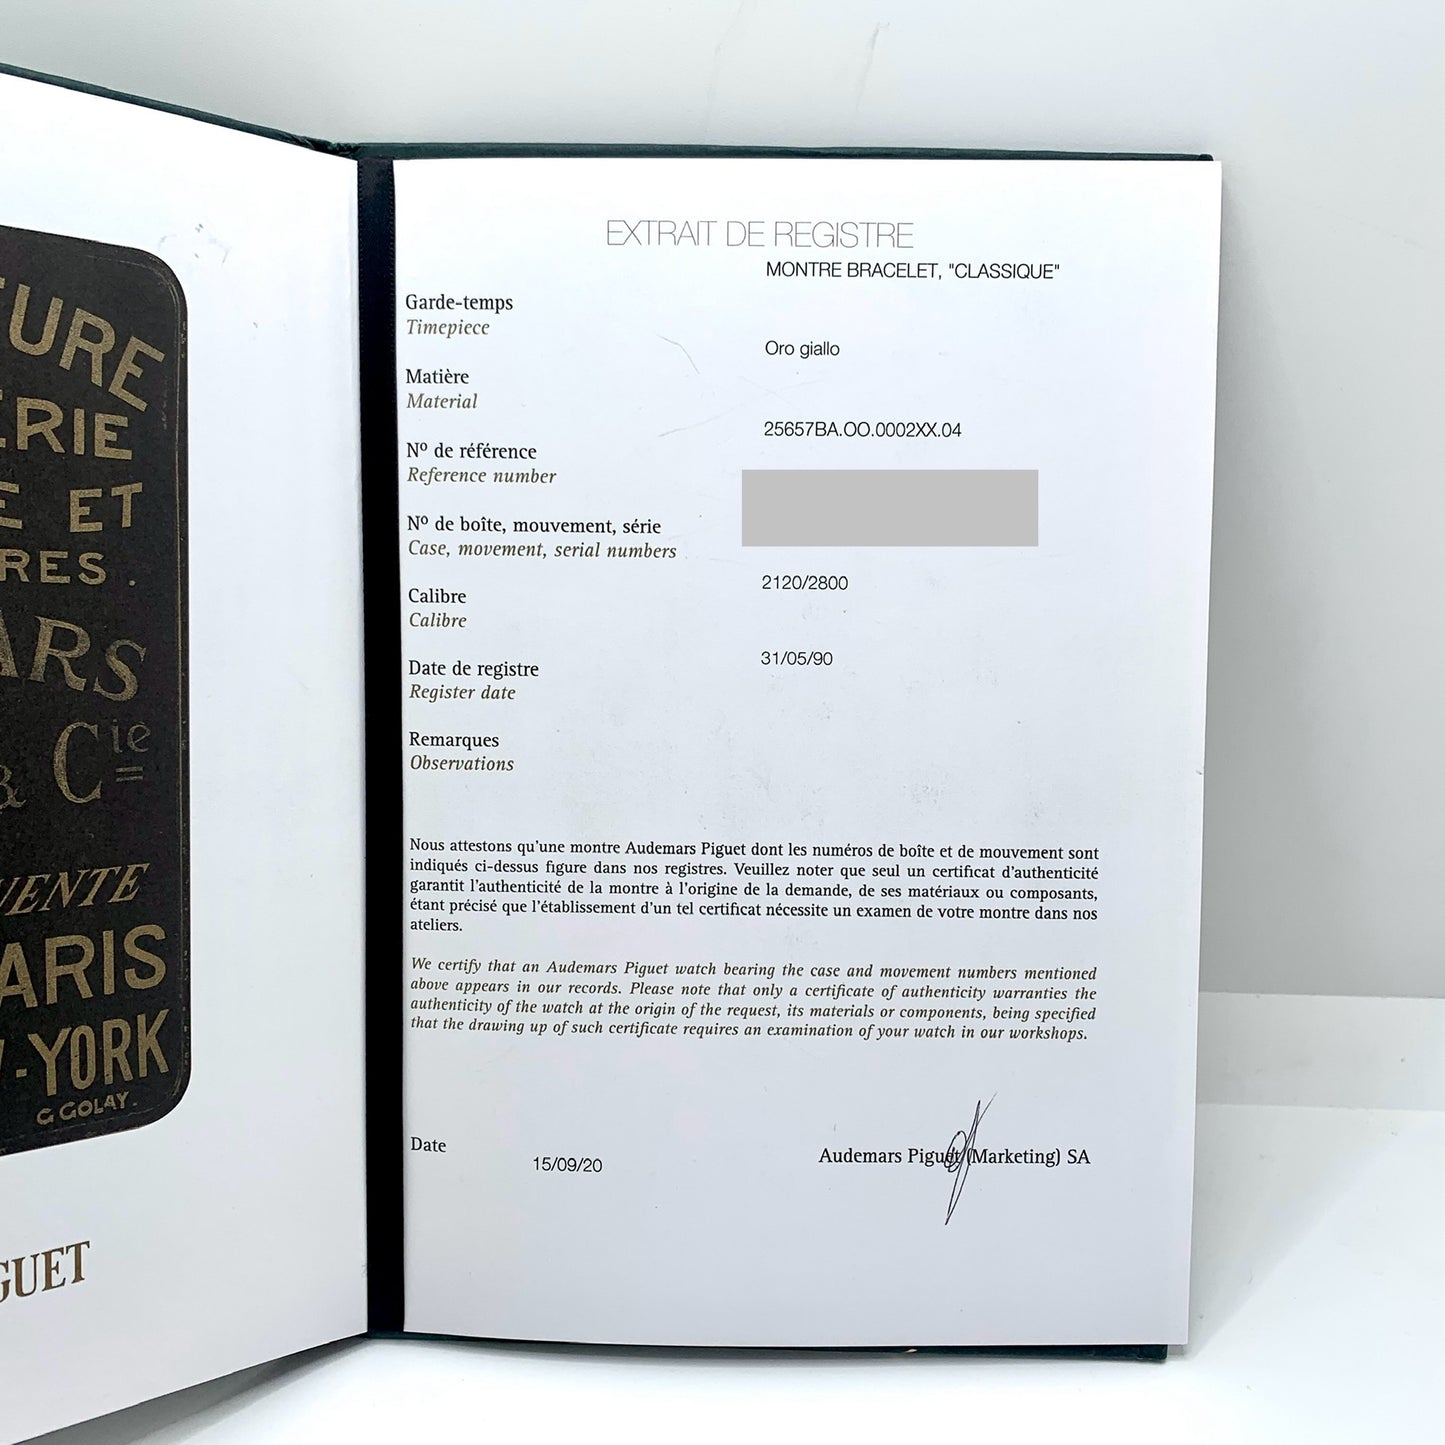 TURE
ERIE
E ET
RES.
ARS
& Cie
UENTE
ARIS
-YORK
G GOLAY.
GUET
EXTRAIT DE REGISTRE
MONTRE BRACELET, "CLASSIQUE"
Garde-temps
Timepiece
Oro giallo
Matière
Material
25657BA.OO.0002XX.04
Nº de référence
Reference number
Nº de boîte, mouvement, série
Case, movement, serial numbers
2120/2800
Calibre
Calibre
31/05/90
Date de registre
Register date
Remarques
Observations
Nous attestons qu'une montre Audemars Piguet dont les numéros de boîte et de mouvement sont
indiqués ci-dessus figure dans nos registres. Veuillez noter que seul un certificat d'authenticité
garantit l'authenticité de la montre à l'origine de la demande, de ses matériaux ou composants,
étant précisé que l'établissement d'un tel certificat nécessite un examen de votre montre dans nos
ateliers.
We certify that an Audemars Piguet watch bearing the case and movement numbers mentioned
above appears in our records. Please note that only a certificate of authenticity warranties the
authenticity of the watch at the origin of the request, its materials or components, being specified
that the drawing up of such certificate requires an examination of your watch in our workshops.
Date
15/09/20
Audemars Piguet (Marketing) SA